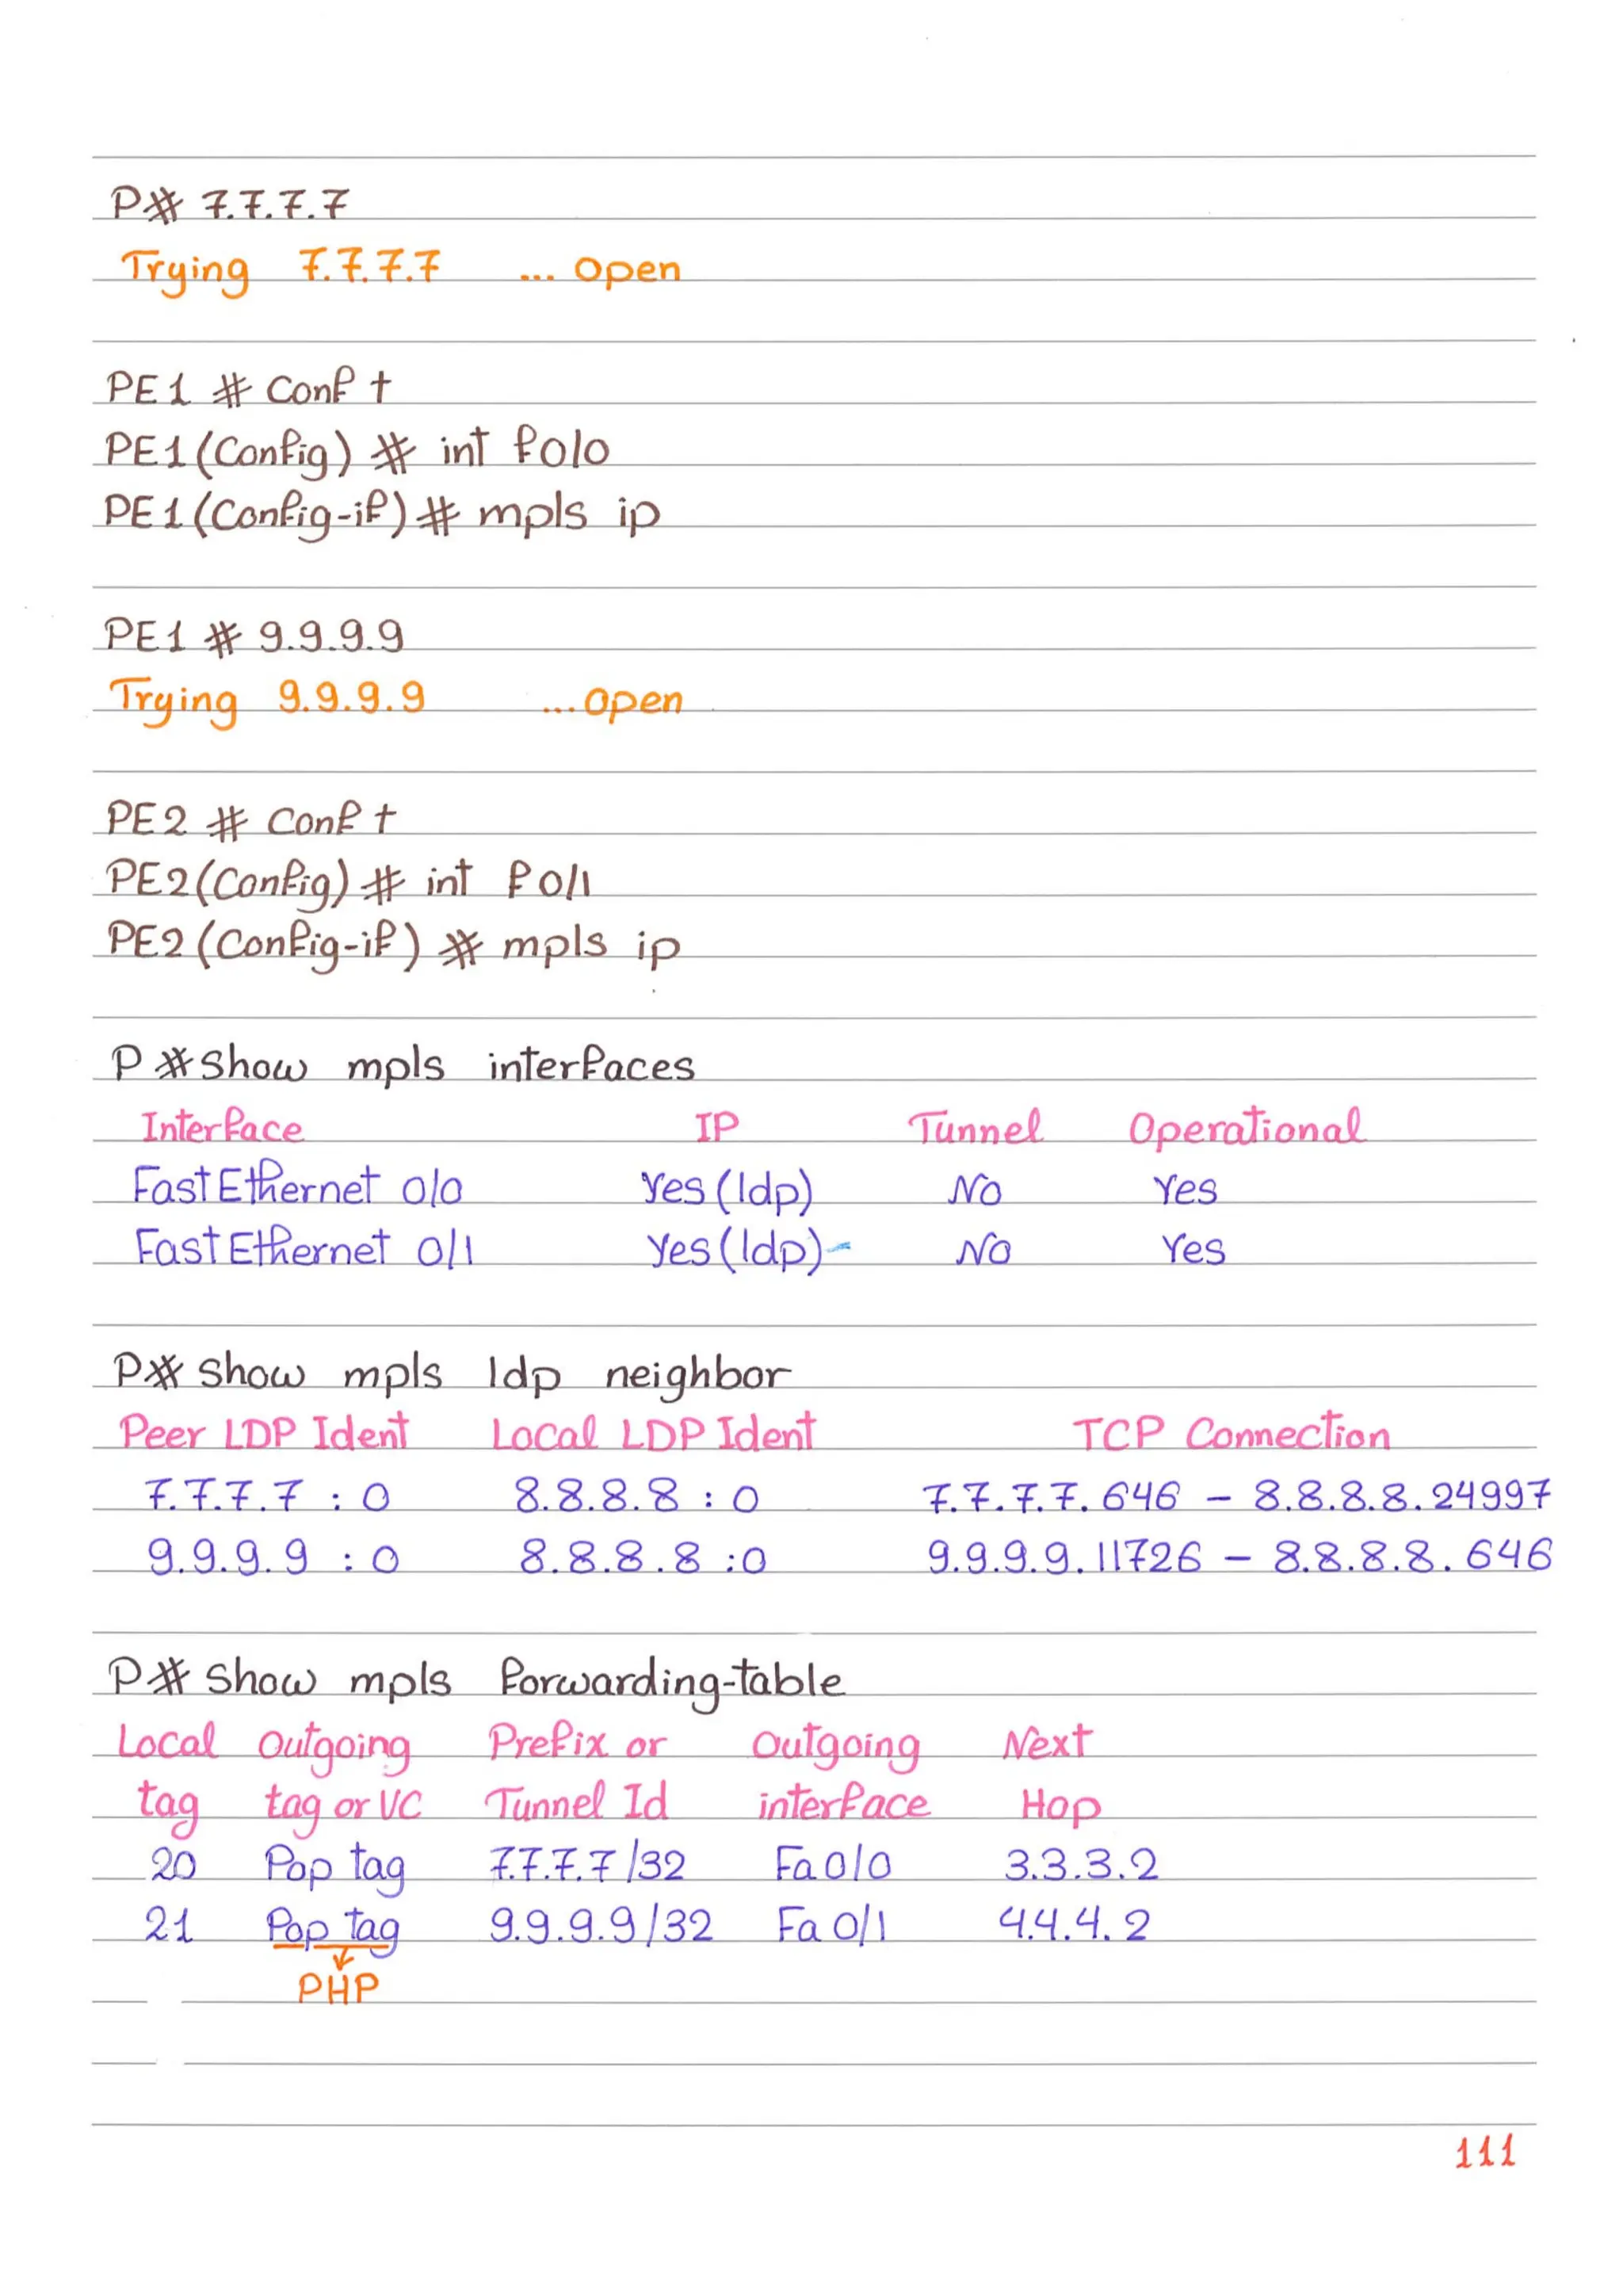 P# 7.7.7.7
Trying 7.7.7.7 ... Open
PE1 # Conf t
PE1(Config) # int f0/0
PE1(Config-if) # mpls ip
PE1 # 9.9.9.9
Trying 9.9.9.9 ... Open
PE2 # Conf t
PE2(Config) # int f0/1
PE2(Config-if) # mpls ip
P #Show mpls interfaces
Interface IP Tunnel Operational
FastEthernet 0/0 Yes (ldp) No Yes
FastEthernet 0/1 Yes (ldp) No Yes
P# Show mpls ldp neighbor
Peer LDP Ident Local LDP Ident TCP Connection
7.7.7.7 : 0 8.8.8.8 : 0 7.7.7.7. 646 - 8.8.8.8. 24997
9.9.9.9 : 0 8.8.8.8 :0 9.9.9.9. 11726 - 8.8.8.8. 646
P# Show mpls forwarding-table
Local Outgoing Prefix or Outgoing Next
tag tag or VC Tunnel Id interface Hop
20 Pop tag 7.7.7.7/32 Fa0/0 3.3.3.2
21 Pop tag 9.9.9.9/32 Fa 0/1 4.4.4.2
PHP
111